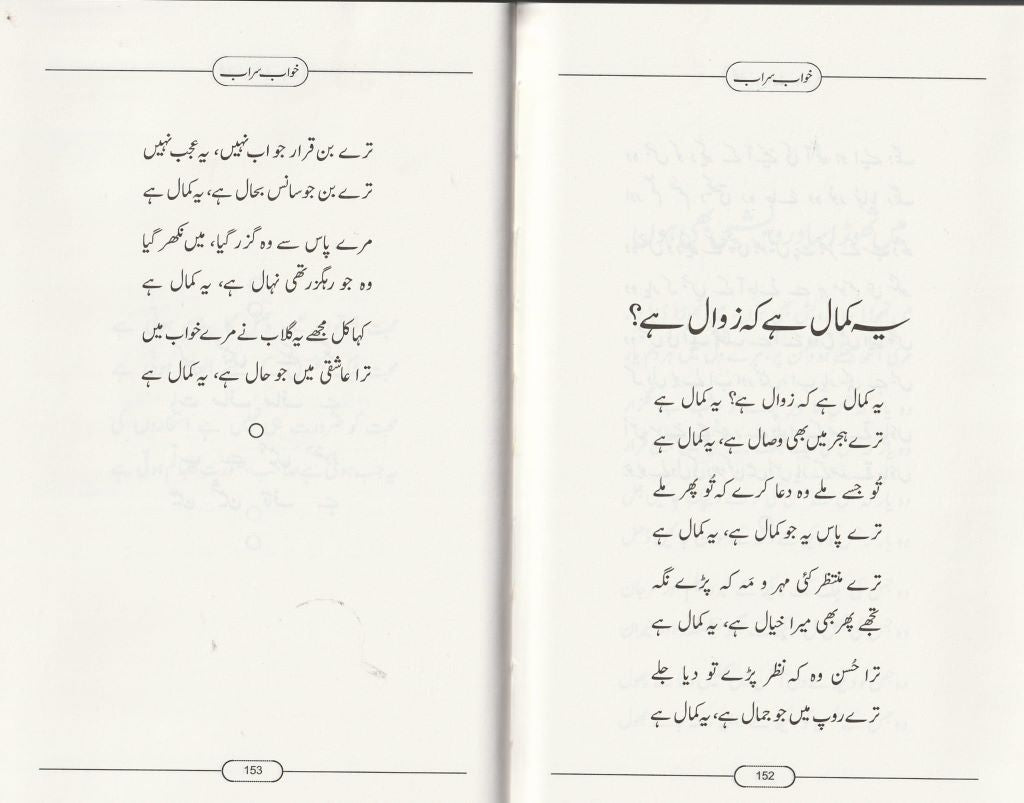 خواب سراب
یہ کمال ہے کہ زوال ہے؟
یہ کمال ہے کہ زوال ہے؟ یہ کمال ہے
ترے ہجر میں بھی وصال ہے، یہ کمال ہے
تُو جسے ملے وہ دعا کرے کہ تُو پھر ملے
ترے پاس یہ جو کمال ہے، یہ کمال ہے
ترے منتظر کئی مہر و مَہ کہ پڑے نگہ
تجھے پھر بھی میرا خیال ہے، یہ کمال ہے
ترا حُسن وہ کہ نظر پڑے تو دیا جلے
ترے روپ میں جو جمال ہے، یہ کمال ہے
152
خواب سراب
ترے بن قرار جو اب نہیں، یہ عجب نہیں
ترے بن جو سانس بحال ہے، یہ کمال ہے
مرے پاس سے وہ گزر گیا، میں نکھر گیا
وہ جو رہگزر تھی نہال ہے، یہ کمال ہے
کہا کل مجھے یہ گلاب نے مرے خواب میں
ترا عاشقی میں جو حال ہے، یہ کمال ہے
153